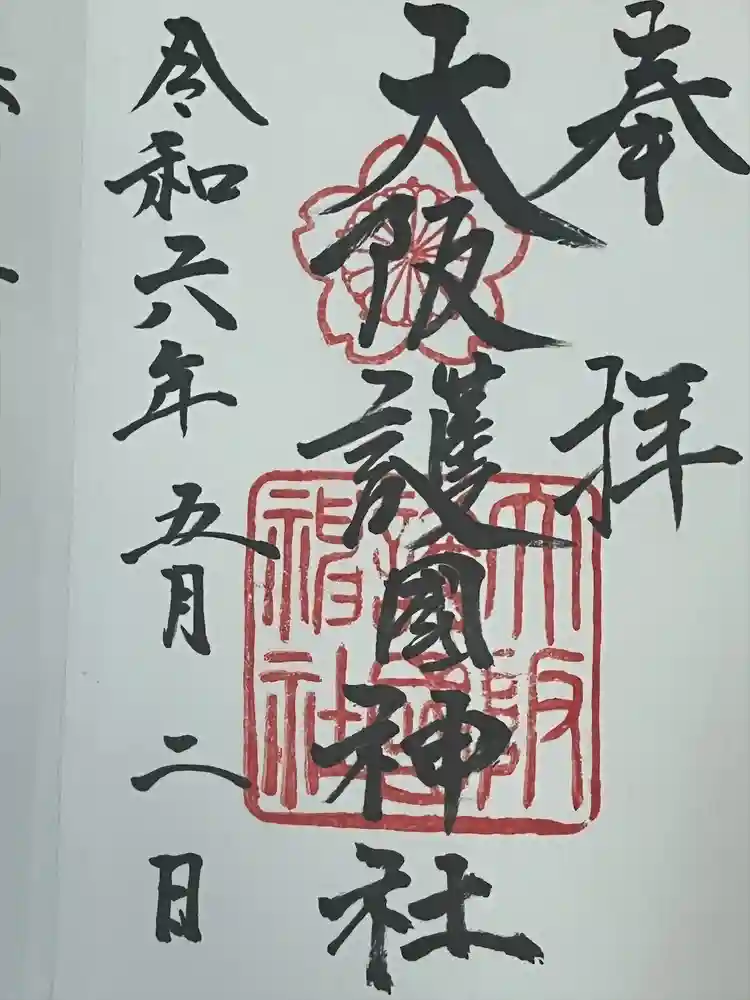 奉拝
大阪護國神社
大阪護國神社
令和六年五月二日